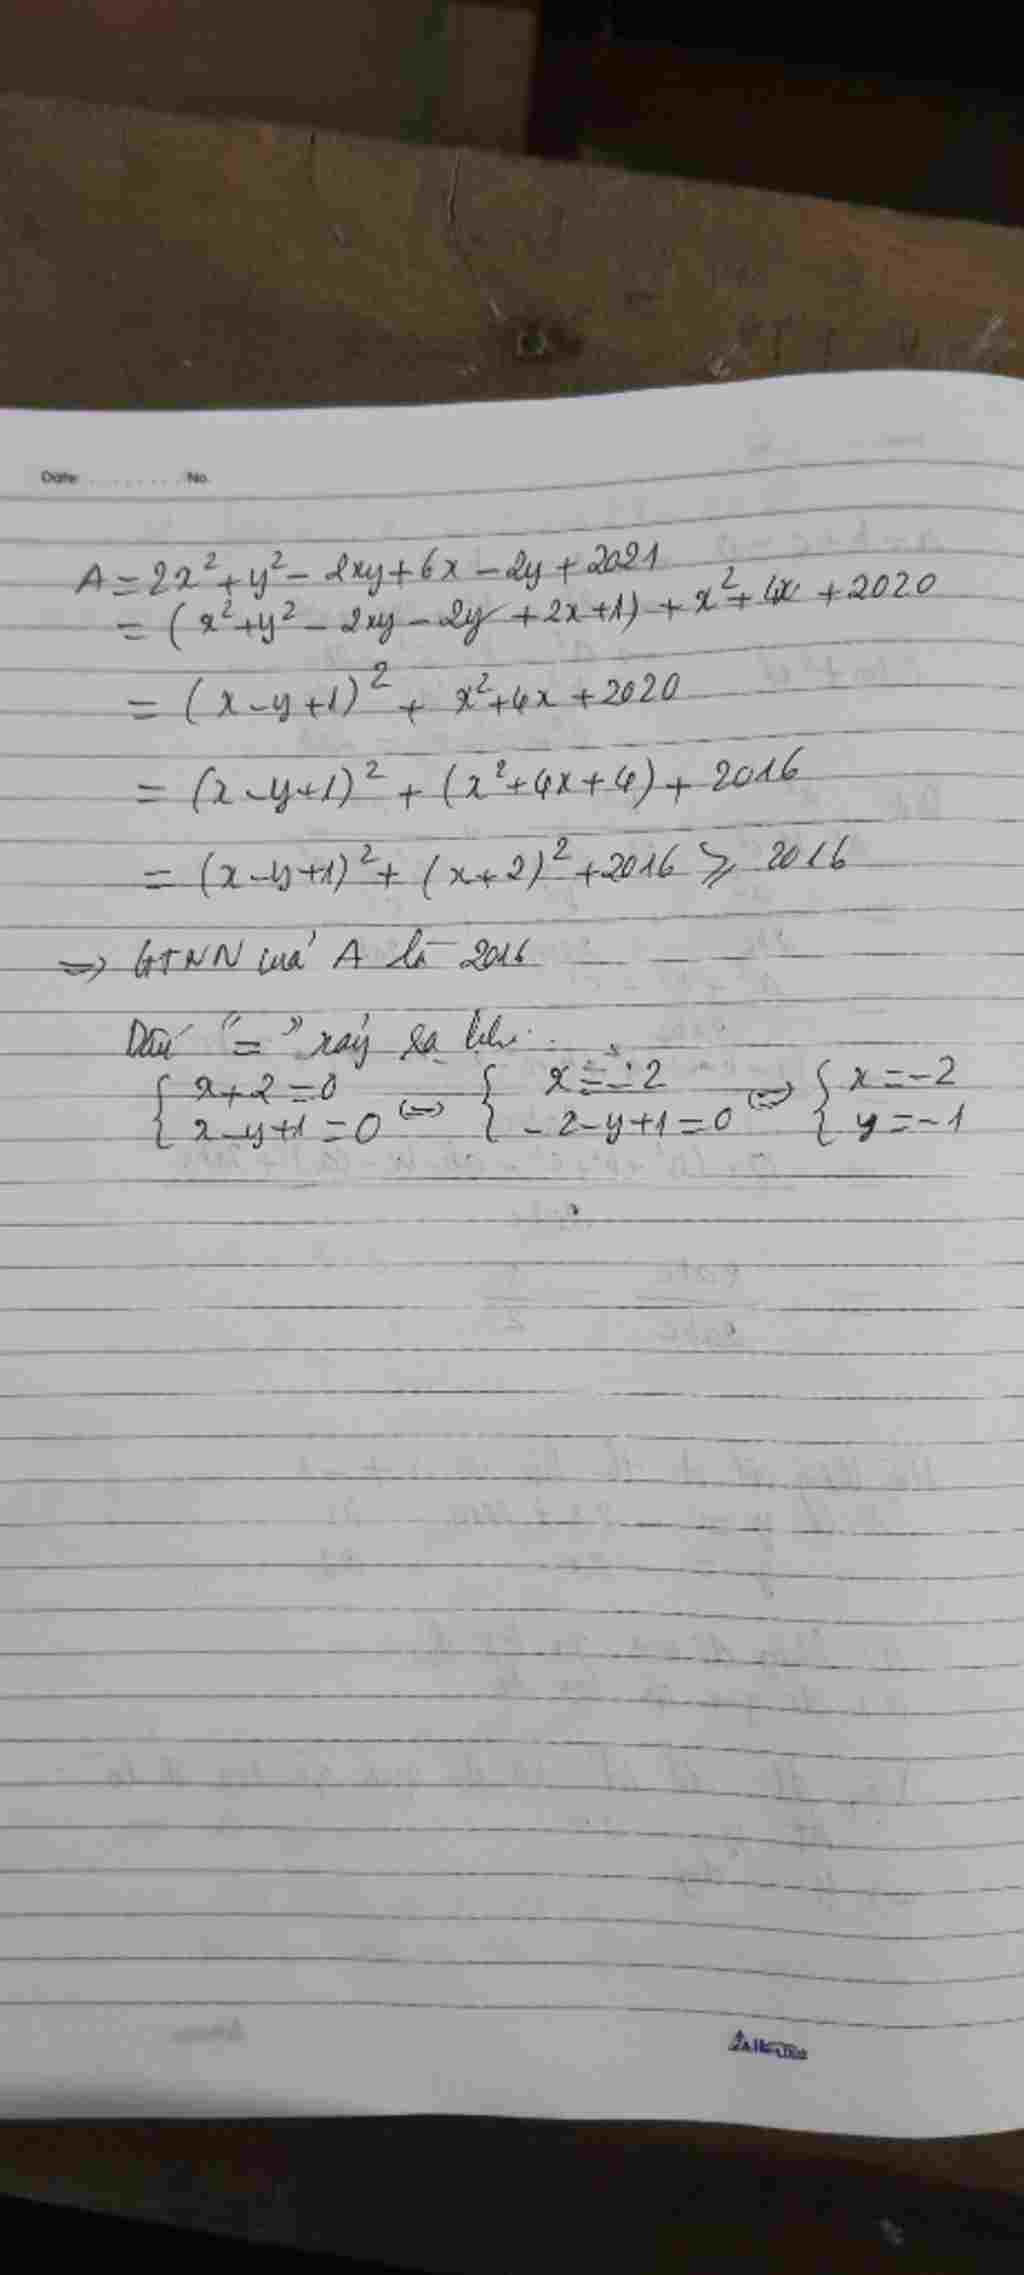 Date No.
A = 2x² + y² - 2xy + 6x - 2y + 2021
= (x² + y² - 2xy - 2y + 2x + 1) + x² + 4x + 2020
= (x - y + 1)² + x² + 4x + 2020
= (x - y + 1)² + (x² + 4x + 4) + 2016
= (x - y + 1)² + (x + 2)² + 2016 ⩾ 2016
=> GTNN của A là 2016
Dấu "=" xảy ra khi:
{ x + 2 = 0 <=> { x = -2 <=> { x = -2
{ x - y + 1 = 0 { -2 - y + 1 = 0 { y = -1